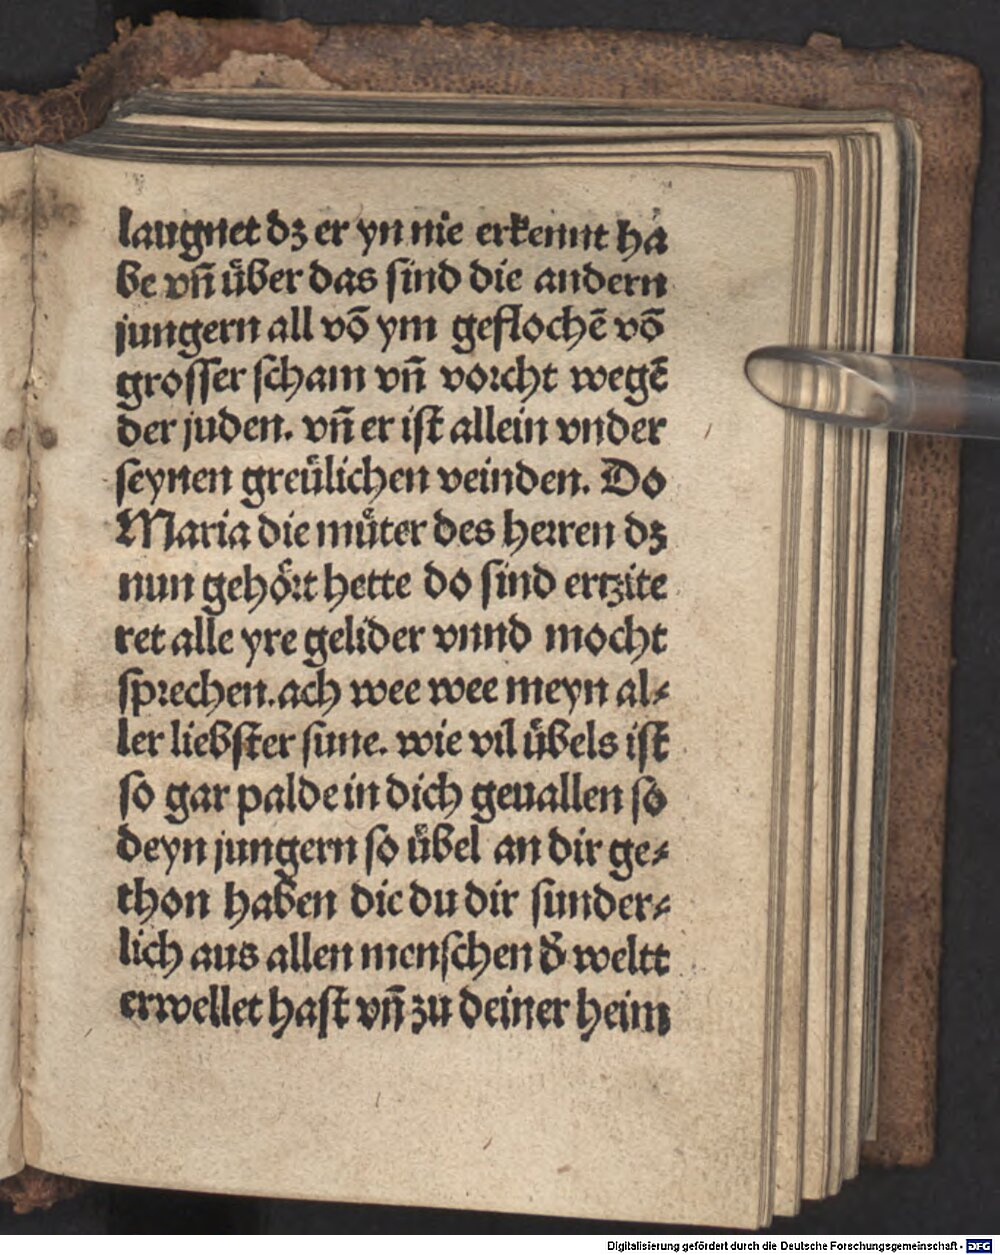 laugnet dz er yn nie erkennt ha
be vn̄ über das sind die andern
jungern all vō ym geflochē vō
grosser scham vn̄ vorcht wegē
der juden. vn̄ er ist allein vnder
seynen greülichen veinden. Do
Maria die muͤter des herren dz
nun gehoͤrt hette do sind ertzite
ret alle yre gelider vnnd mocht
sprechen. ach wee wee meyn al⸗
ler liebster sune. wie vil übels ist
so gar palde in dich geuallen so
deyn jungern so übel an dir ge⸗
thon haben die du dir sunder⸗
lich aus allen menschen d̄ weltt
erwellet hast vn̄ zu deiner heim
Digitalisierung gefördert durch die Deutsche Forschungsgemeinschaft - DFG